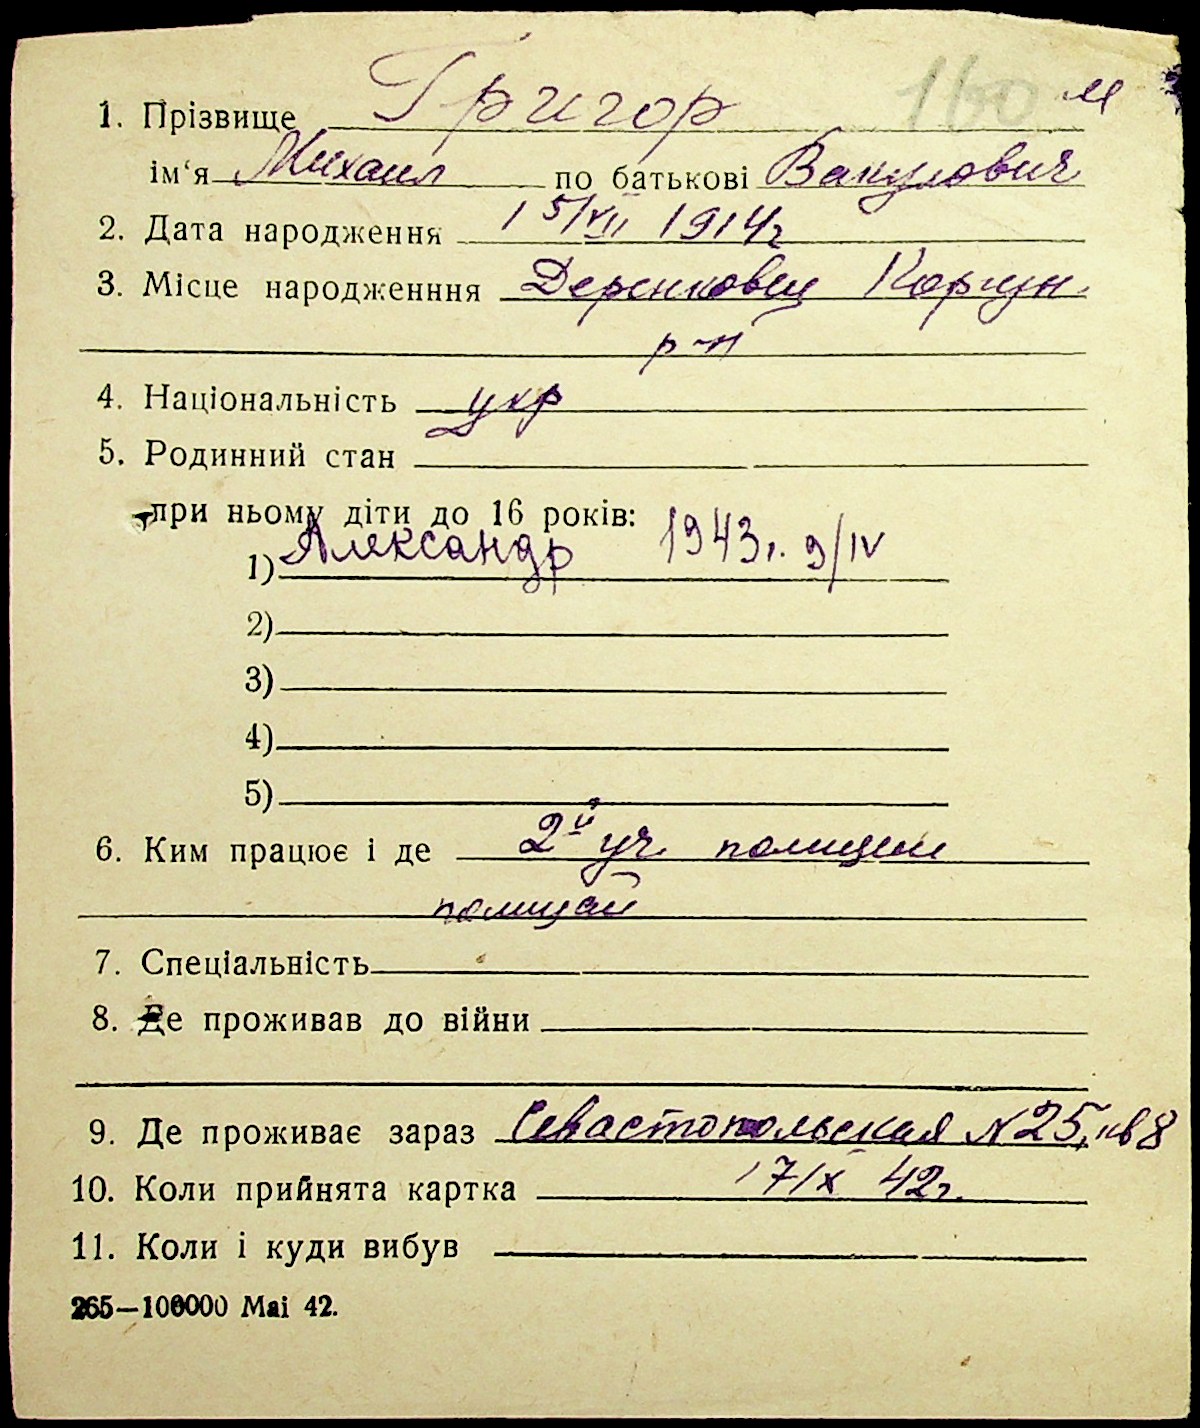 160 м
1. Прізвище Григор
ім‘я Михаил по батькові Вакулович
2. Дата народження 15/VII 1914г
3. Місце народженння Деренковец Корсун.
р-н
4. Національність укр
5. Родинний стан
при ньому діти до 16 років:
1) Александр 1943г. 9/IV
2)
3)
4)
5)
6. Ким працює і де 2й уч. полиции
полицай
7. Спеціальність
8. Де проживав до війни
9. Де проживає зараз Севастопольская N 25, кв 8
10. Коли прийнята картка 17/IX 42г.
11. Коли і куди вибув
265—100000 Mai 42.